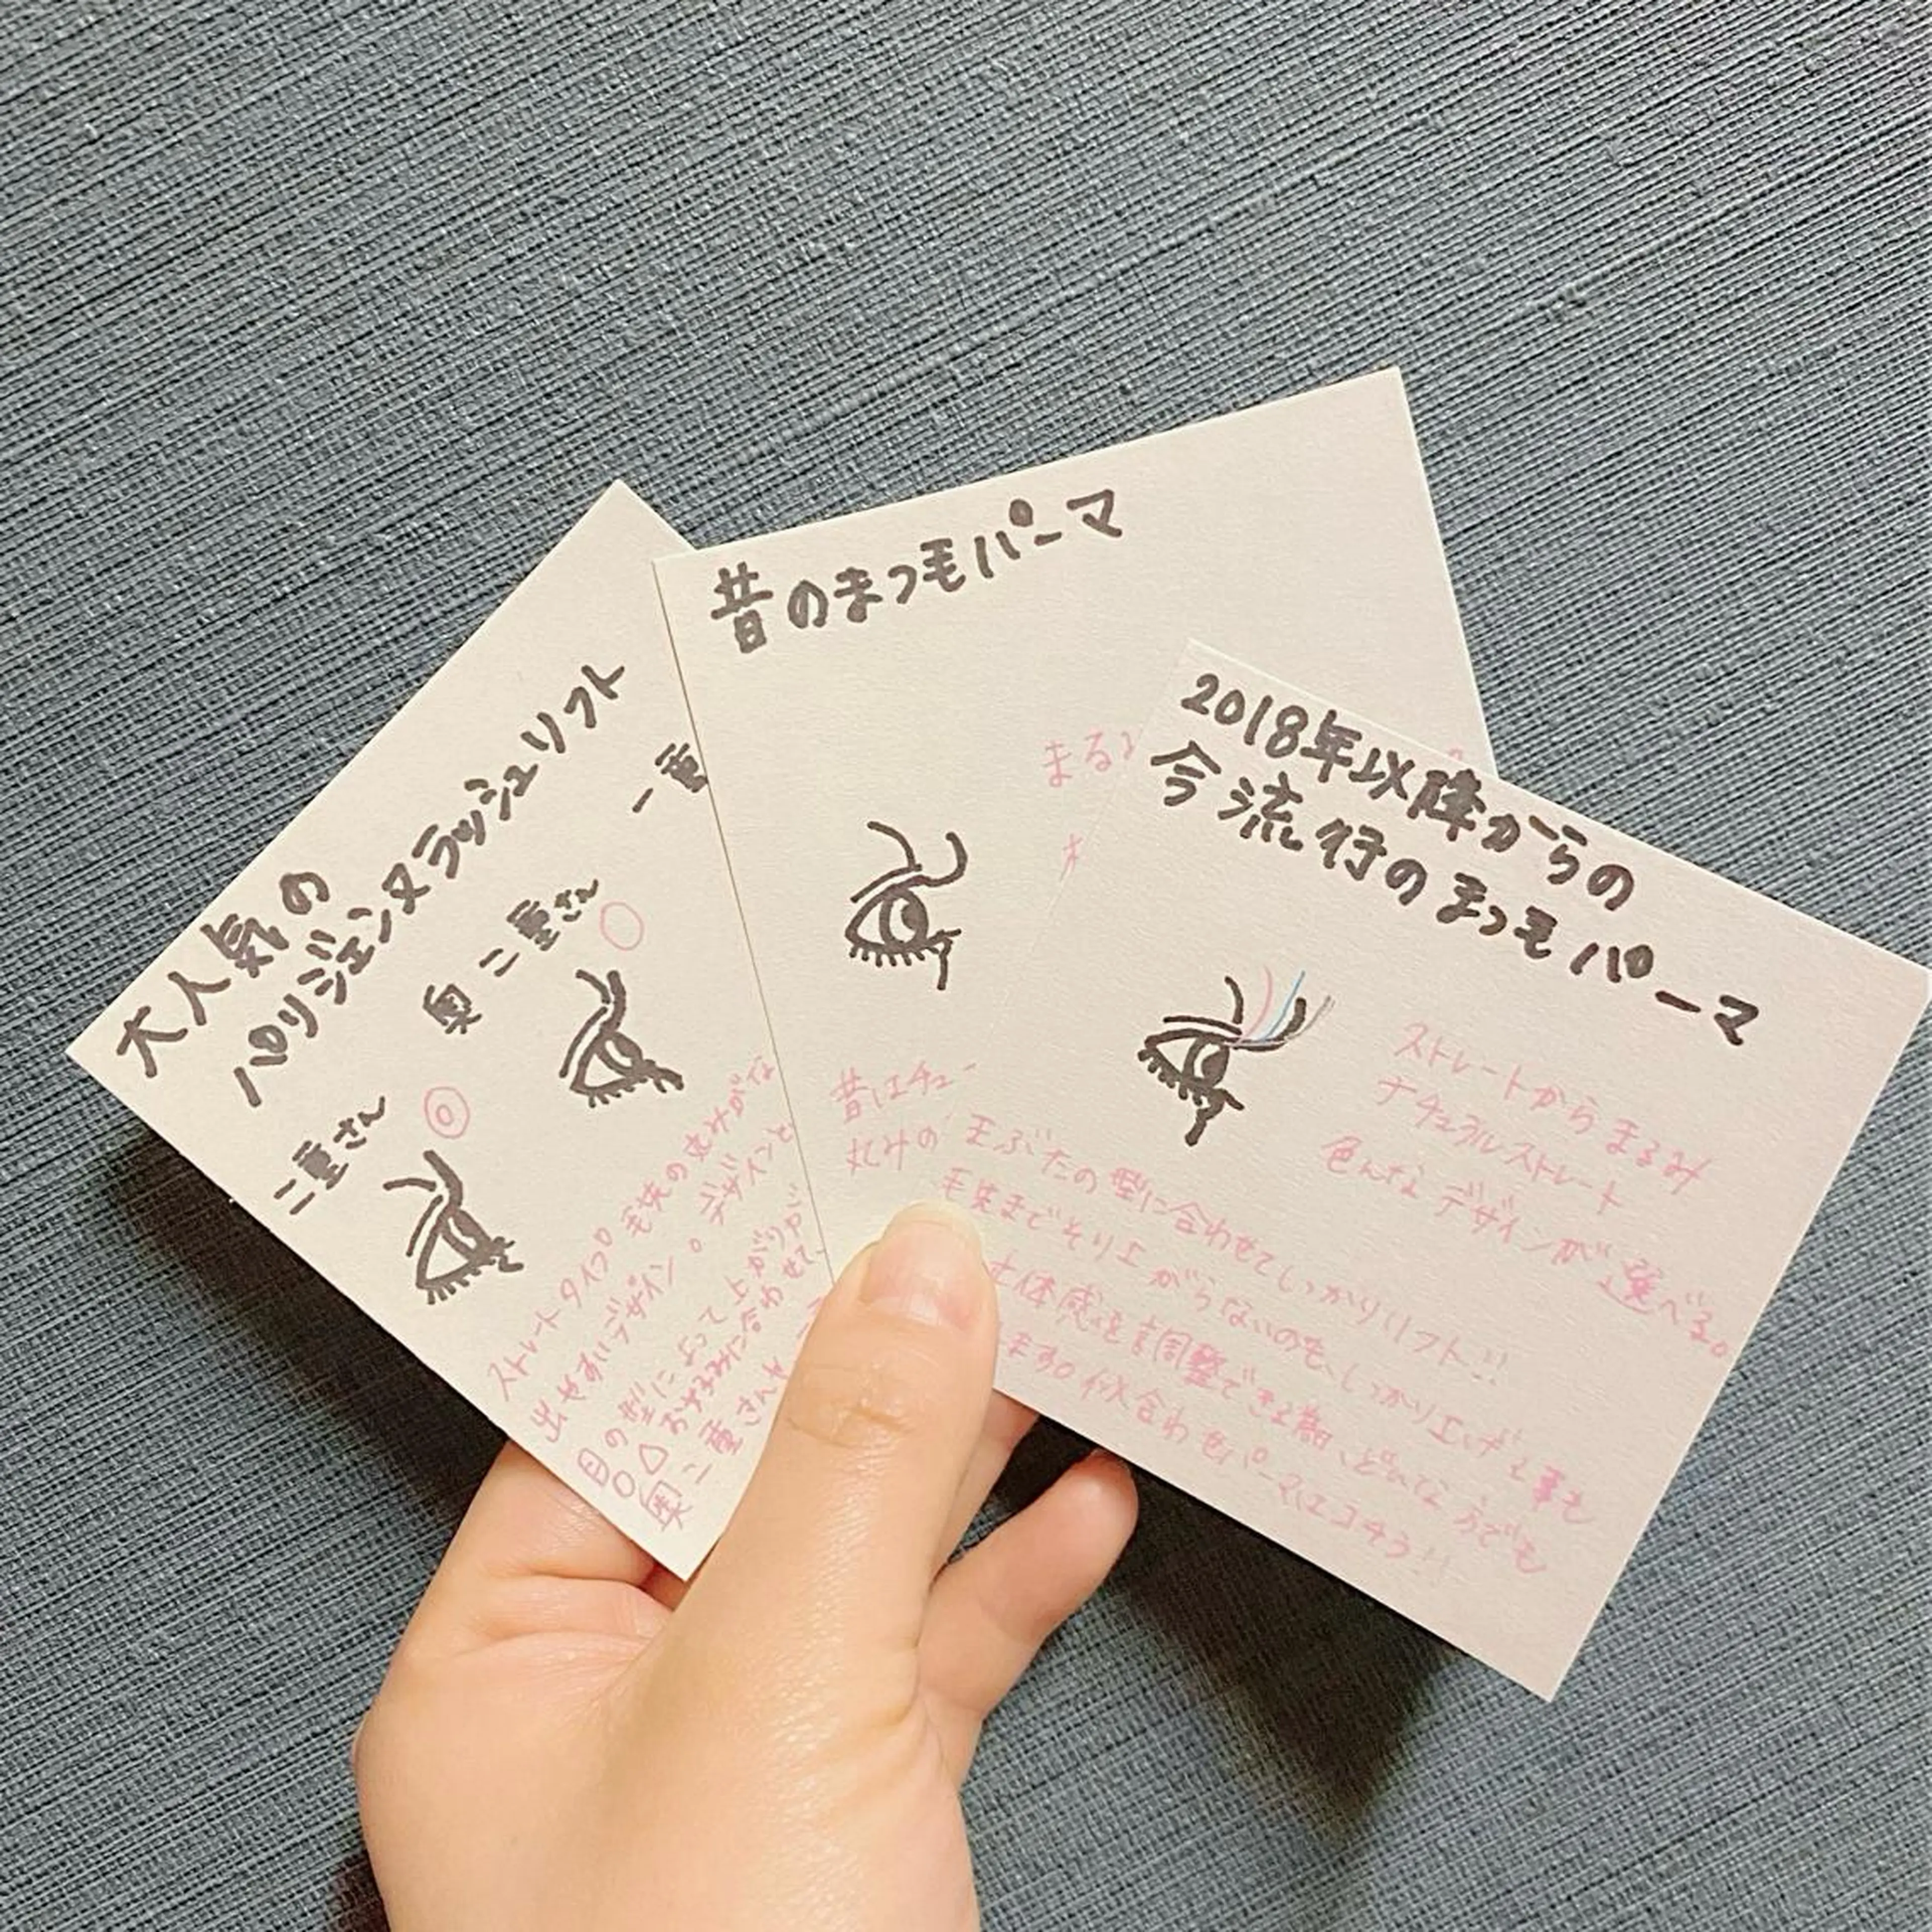 大人気の
パリジェンヌラッシュリフト
二重さん
奥二重さん
一重
ストレートタイプ 毛先の丸みがな
出やすいデザイン。デザインと
目の型によって上がりや
おなやみに合わせて
奥二重さんや
昔のまつ毛パーマ
まる
昔はチュー
丸みの
2018年以降からの
今流行のまつ毛パーマ
ストレートからまるみ
ナチュラルストレート
色んなデザインが選べる。
まぶたの型に合わせてしっかりリフト!!
毛先までそり上がらないのも、しっかり上げる事も
体感を調整できる為、どんな方でも
ます。似合わせパーマはコチラ!!